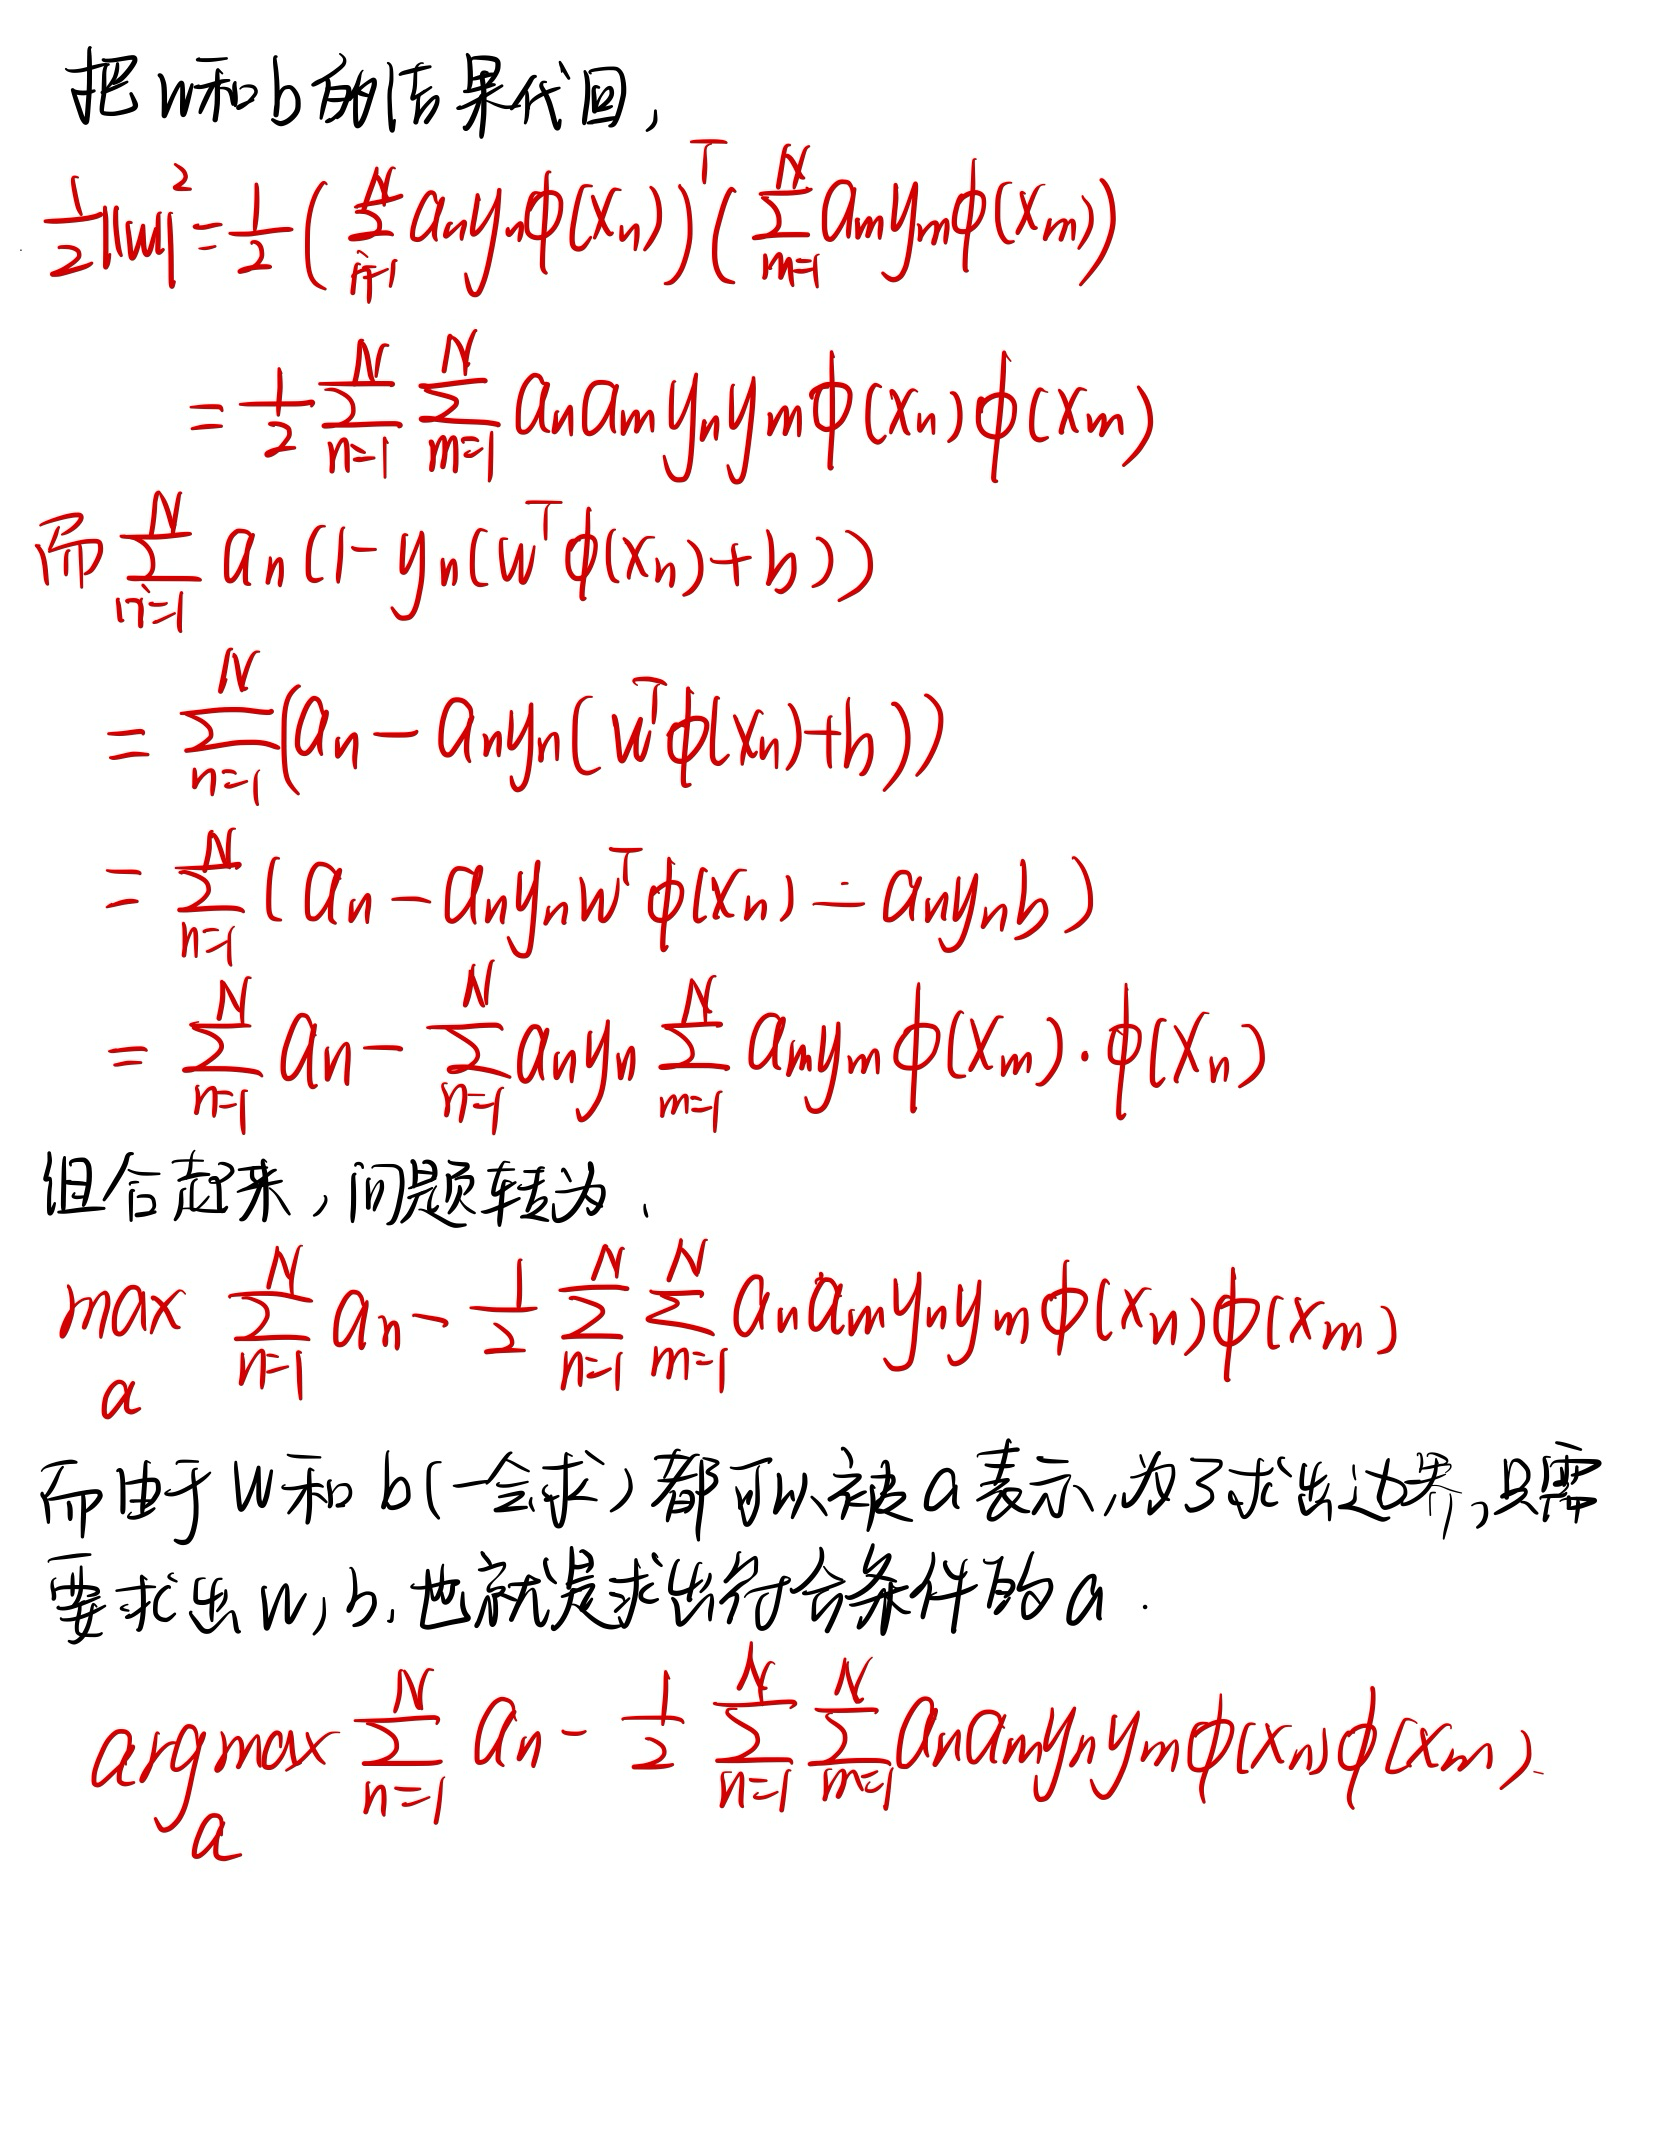 把w和b的结果代回,
½||w||² = ½(∑_{n=1}^{N} aₙyₙϕ(xₙ))ᵀ(∑_{m=1}^{N} aₘyₘϕ(xₘ))
= ½∑_{n=1}^{N}∑_{m=1}^{N} aₙaₘyₙyₘϕ(xₙ)ϕ(xₘ)
而∑_{n=1}^{N} aₙ(1-yₙ(wᵀϕ(xₙ)+b))
= ∑_{n=1}^{N}(aₙ-aₙyₙ(wᵀϕ(xₙ)+b))
= ∑_{n=1}^{N}(aₙ-aₙyₙwᵀϕ(xₙ)-aₙyₙb)
= ∑_{n=1}^{N} aₙ-∑_{n=1}^{N} aₙyₙ∑_{m=1}^{N} aₘyₘϕ(xₘ)·ϕ(xₙ)
组合起来,问题转为.
max_a ∑_{n=1}^{N} aₙ-½∑_{n=1}^{N}∑_{m=1}^{N} aₙaₘyₙyₘϕ(xₙ)ϕ(xₘ)
而由于w和b(一会求)都可以被a表示,为了求出边界,只需
要求出w,b,也就是求出符合条件的a.
argmax_a ∑_{n=1}^{N} aₙ-½∑_{n=1}^{N}∑_{m=1}^{N} aₙaₘyₙyₘϕ(xₙ)ϕ(xₘ).